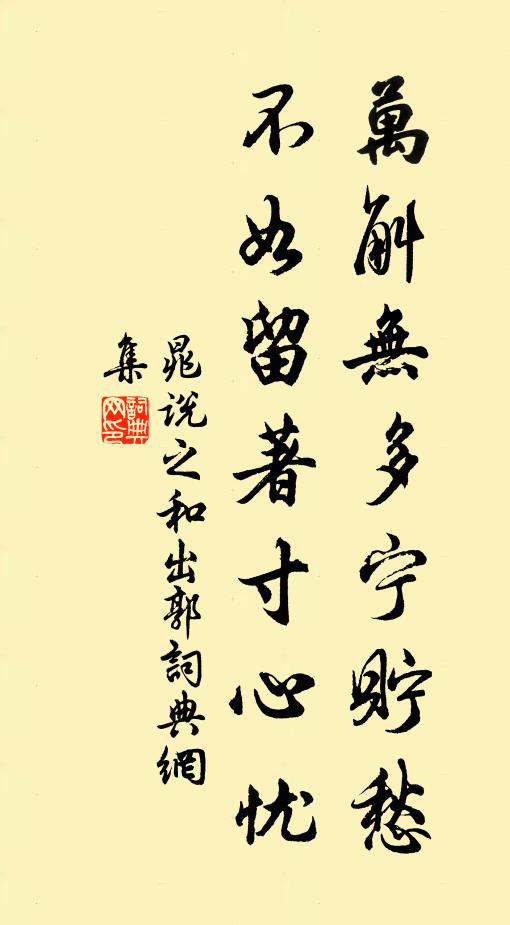 萬斛無多宁貯愁
不如留著寸心忧
晁说之和出郭詞典網
集
詞典網印